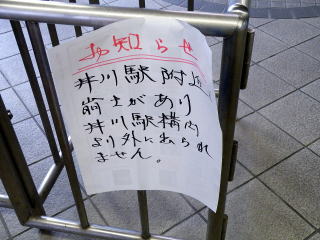 お知らせ
井川駅附近
崩土があり
井川駅構内
より外に出られ
ません。